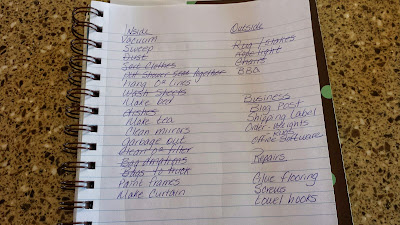 Inside
Vacuum
Sweep
Dust
Sort Clothes
Put Shower seat together
Hang O² Lines
Wash Sheets
Make bed
dishes
Make tea
Clean mirrors
Garbage out
Clean O² filter
Bag donations
Bags to truck
Paint frames
Make Curtain
Outside
Rug / Stakes
light
Chairs
BBQ
Business
Blog Post
Shipping Label
Order Weights
Office Software
Repairs
Glue flooring
Screws
Towel hooks